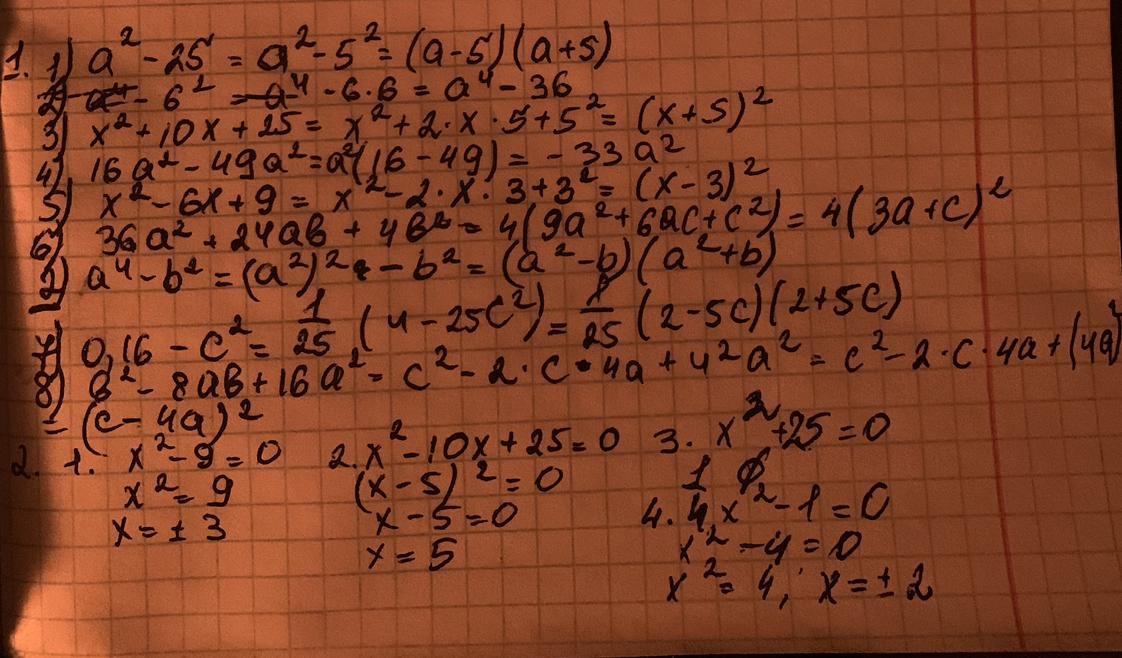 1. 1) a² - 25 = a² - 5² = (a-5)(a+5)
2) a⁴ - 6² = a⁴ - 6·6 = a⁴ - 36
3) x² + 10x + 25 = x² + 2·x·5 + 5² = (x+5)²
4) 16a² - 49a² = a²(16 - 49) = - 33a²
5) x² - 6x + 9 = x² - 2·x·3 + 3² = (x-3)²
6) 36a² + 24ab + 4b² = 4(9a² + 6ac + c²) = 4(3a+c)²
2) a⁴ - b² = (a²)² - b² = (a² - b)(a² + b)
7) 0,16 - c² = 1/25 (4 - 25c²) = 1/25 (2-5c)(2+5c)
8) b² - 8ab + 16a² = c² - 2·c·4a + 4²a² = c² - 2·c·4a + (4a)²
= (c - 4a)²
2. 1. x² - 9 = 0
x² = 9
x = ± 3
2. x² - 10x + 25 = 0
(x-5)² = 0
x - 5 = 0
x = 5
3. x² + 25 = 0
1 ∅
4. 4 x² - 1 = 0
x² - 4 = 0
x² = 4, x = ± 2